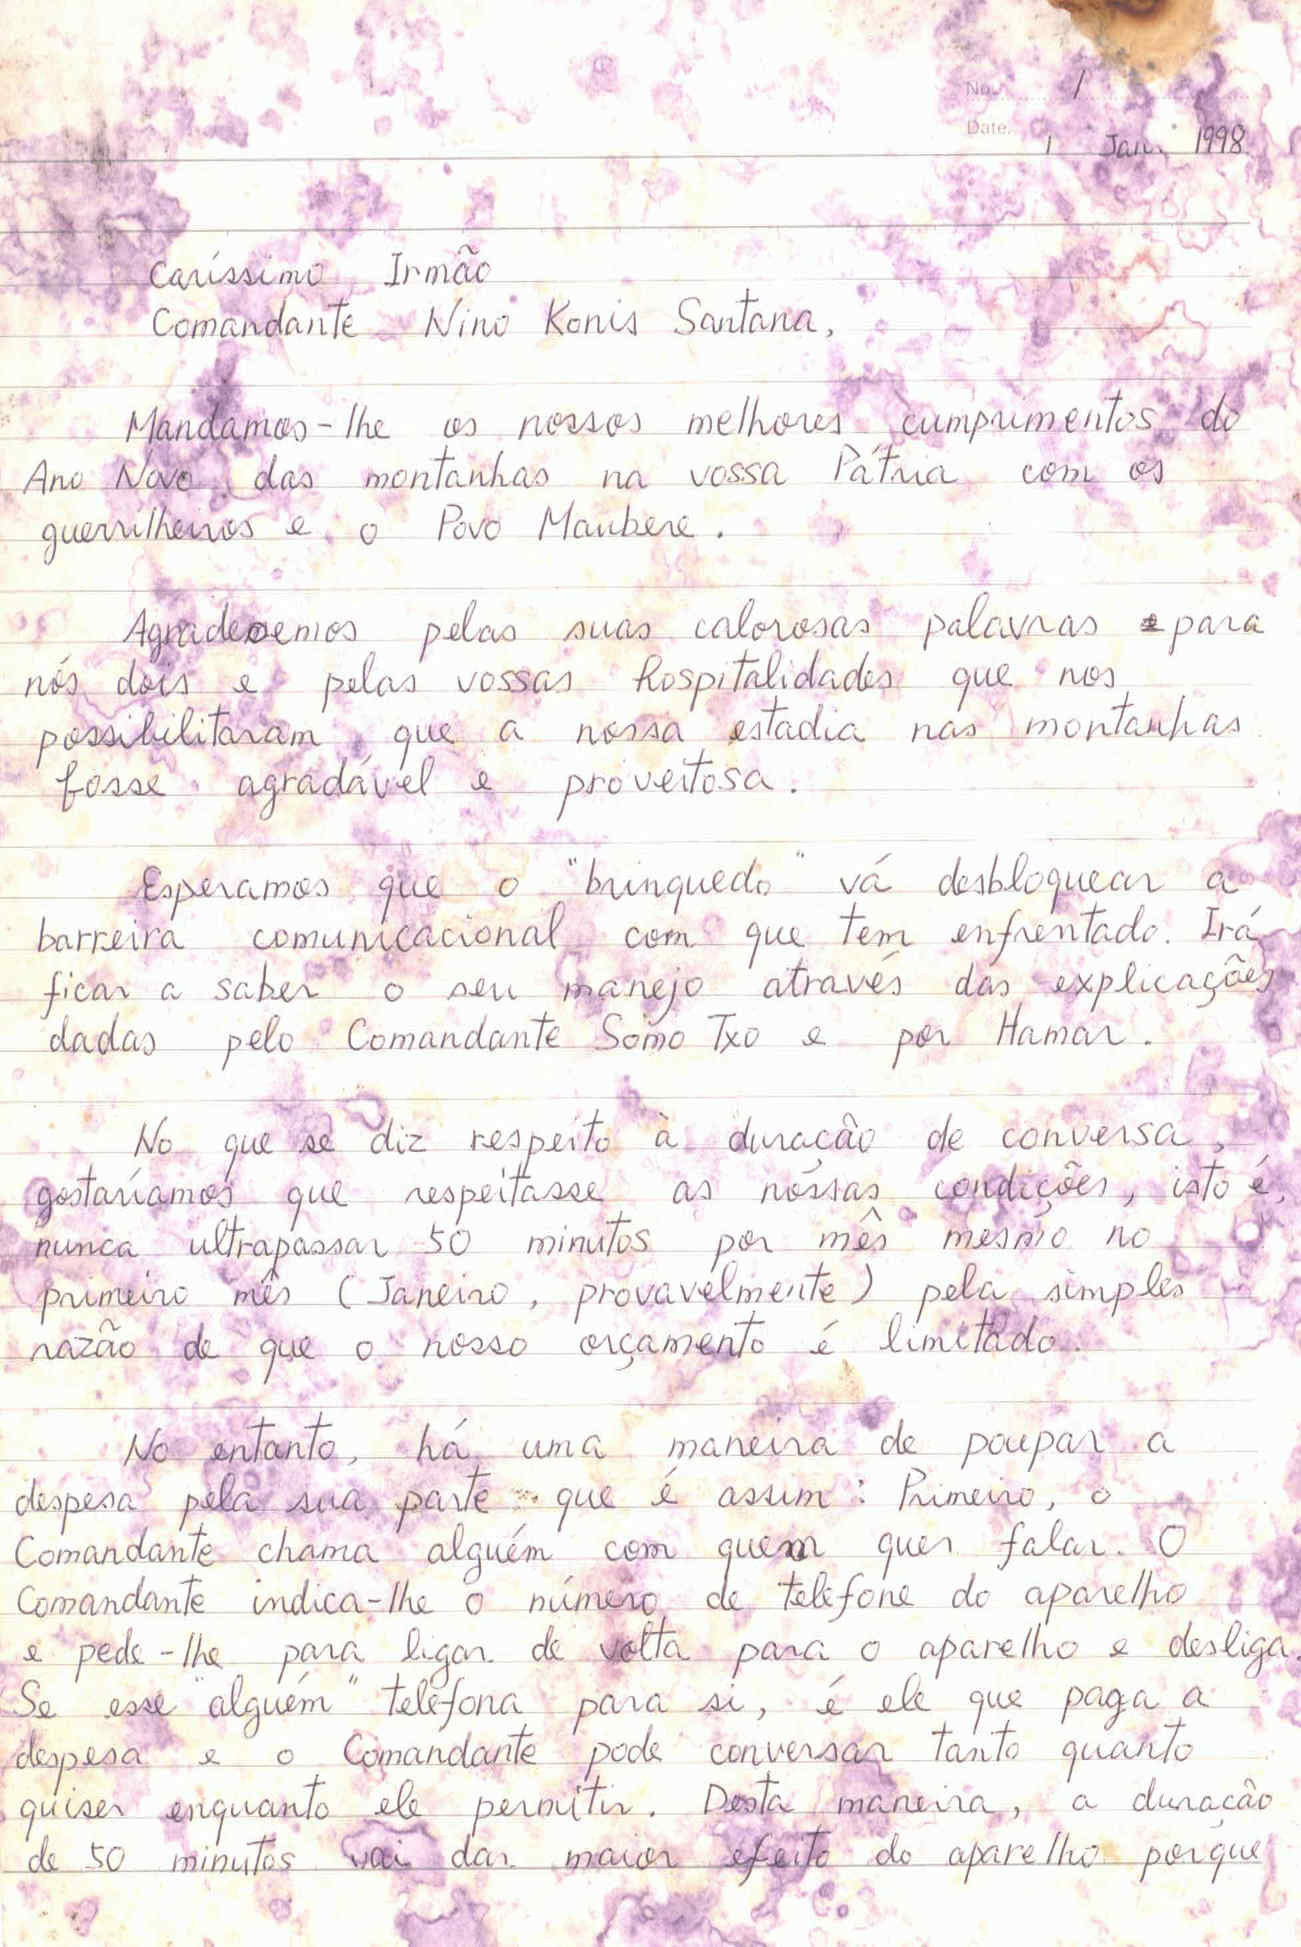 No. 1
Date. 1 Jan. 1998
Caríssimo Irmão
Comandante Nino Konis Santana,
Mandamos-lhe os nossos melhores cumprimentos do
Ano Novo das montanhas na vossa Pátria com os
guerrilheiros e o Povo Maubere.
Agradecemos pelas suas calorosas palavras para
nós dois e pelas vossas hospitalidades que nos
possibilitaram que a nossa estadia nas montanhas
fosse agradável e proveitosa.
Esperamos que o "brinquedo" vá desbloquear a
barreira comunicacional com que tem enfrentado. Irá
ficar a saber o seu manejo através das explicações
dadas pelo Comandante Somo Txo e por Hamar.
No que se diz respeito à duração de conversa,
gostaríamos que respeitasse as nossas condições, isto é,
nunca ultrapassar 50 minutos por mês mesmo no
primeiro mês (Janeiro, provavelmente) pela simples
razão de que o nosso orçamento é limitado.
No entanto, há uma maneira de poupar a
despesa pela sua parte que é assim: Primeiro, o
Comandante chama alguém com quem quer falar. O
Comandante indica-lhe o número de telefone do aparelho
e pede-lhe para ligar de volta para o aparelho e desliga.
Se esse "alguém" telefona para si, é ele que paga a
despesa e o Comandante pode conversar tanto quanto
quiser enquanto ele permitir. Desta maneira, a duração
de 50 minutos vai dar maior efeito do aparelho porque